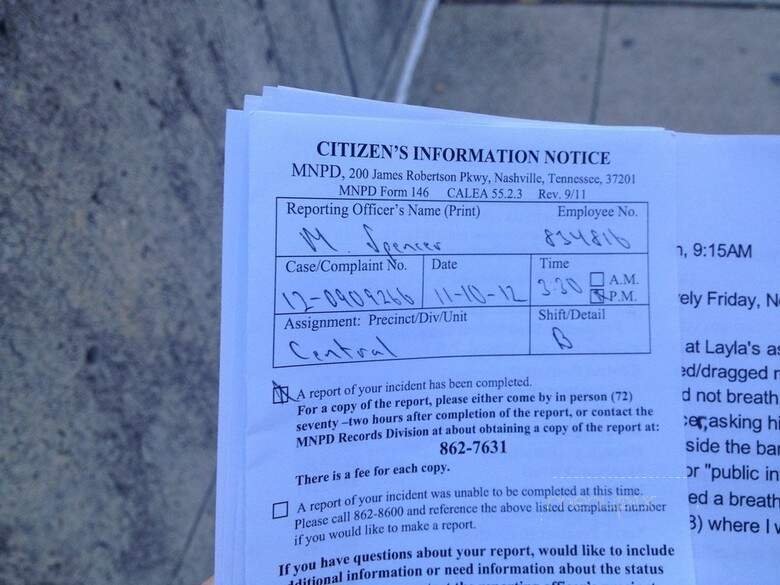 CITIZEN'S INFORMATION NOTICE
MNPD, 200 James Robertson Pkwy, Nashville, Tennessee, 37201
MNPD Form 146 CALEA 55.2.3 Rev. 9/11
Reporting Officer's Name (Print) Employee No.
M. Spencer 834816
Case/Complaint No. Date Time
12-0909266 11-10-12 3:30 A.M.
P.M.
Assignment: Precinct/Div/Unit Shift/Detail
Central B
A report of your incident has been completed.
For a copy of the report, please either come by in person (72)
seventy –two hours after completion of the report, or contact the
MNPD Records Division at about obtaining a copy of the report at:
862-7631
There is a fee for each copy.
A report of your incident was unable to be completed at this time.
Please call 862-8600 and reference the above listed complaint number
if you would like to make a report.
If you have questions about your report, would like to include
additional information or need information about the status
n, 9:15AM
ely Friday, N
at Layla's as
ed/dragged
d not breath
cer, asking hi
side the bar
or "public in
ed a breath
3) where I